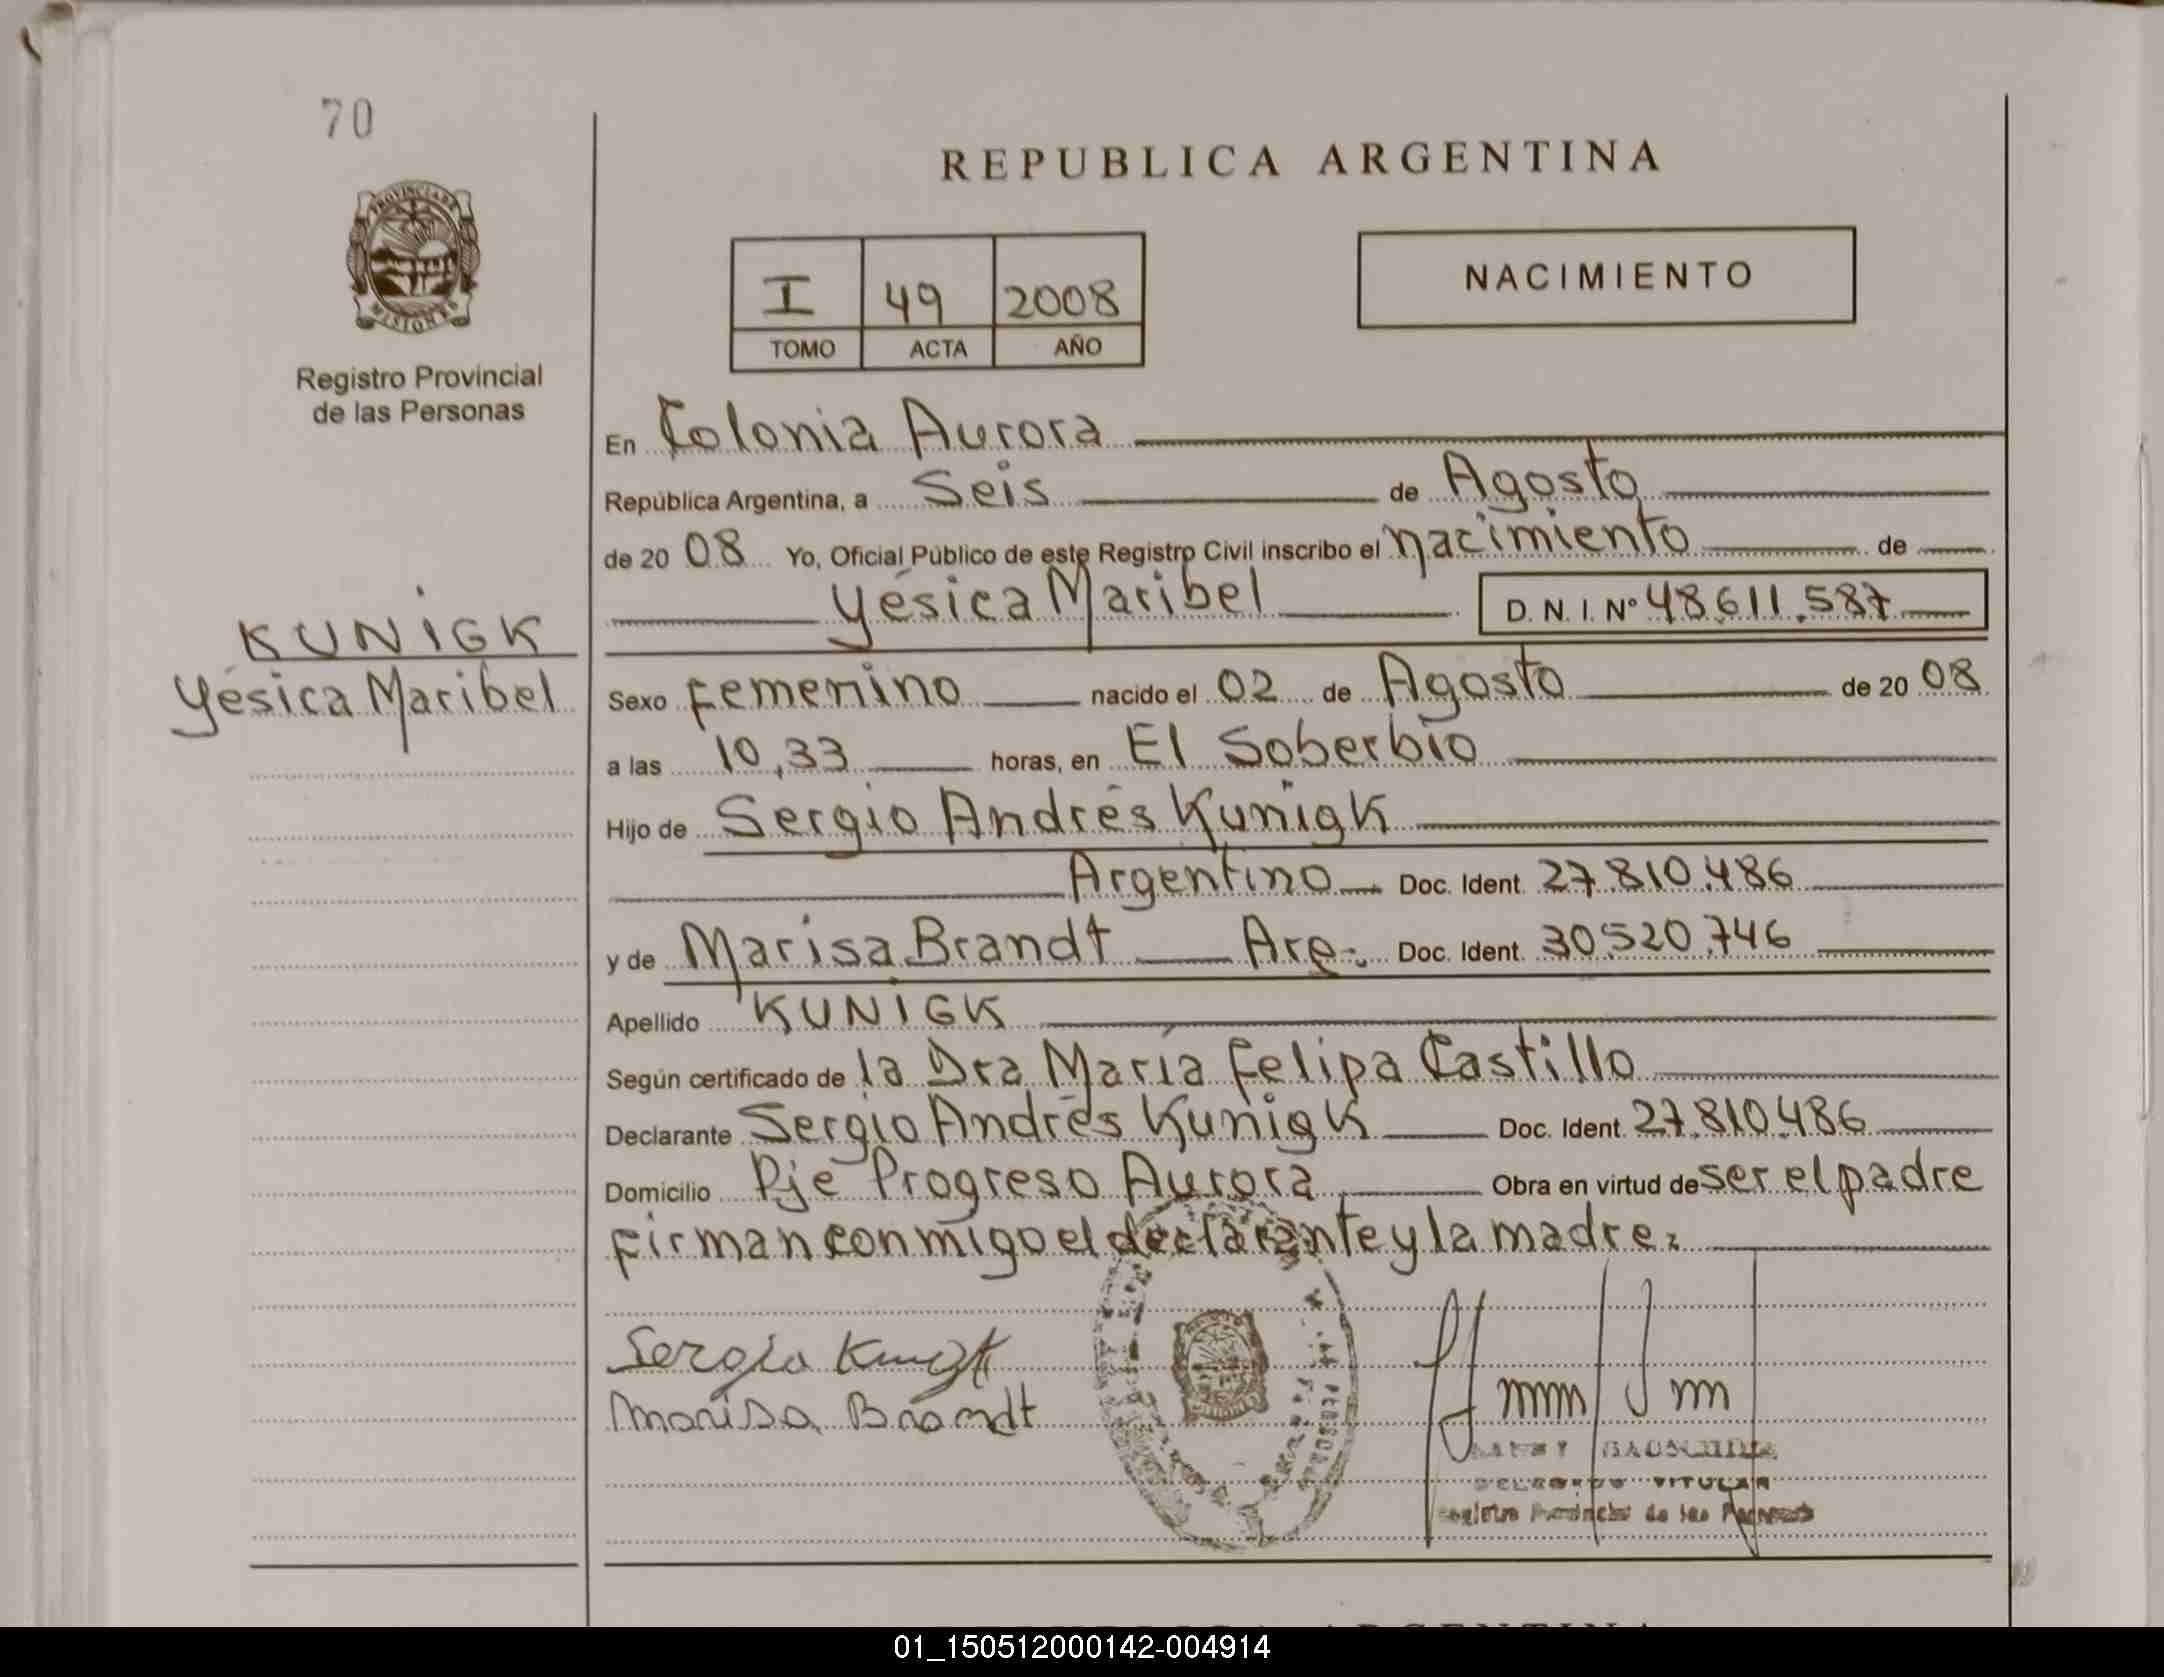 70
PROVINCIA DE
MISIONES
Registro Provincial
de las Personas
KUNIGK
Yésica Maribel
REPUBLICA ARGENTINA
I 49 2008
TOMO ACTA AÑO
NACIMIENTO
En Colonia Aurora
República Argentina, a Seis de Agosto
de 20 08 Yo, Oficial Público de este Registro Civil inscribo el nacimiento de
Yésica Maribel D. N. I. Nº 48.611.587
Sexo Femenino nacido el 02 de Agosto de 20 08
a las 10,33 horas, en El Soberbio
Hijo de Sergio Andrés Kunigk
Argentino Doc. Ident. 27.810.486
y de Marisa Brandt Arg. Doc. Ident. 30.520.746
Apellido KUNIGK
Según certificado de la Dra María Felipa Castillo
Declarante Sergio Andrés Kunigk Doc. Ident. 27.810.486
Domicilio Pje Progreso Aurora Obra en virtud de ser el padre
firman conmigo el declarante y la madre.
Sergio Kunigk
Marisa Brandt
TITULAR
Registro Provincial de las Personas
01_150512000142-004914